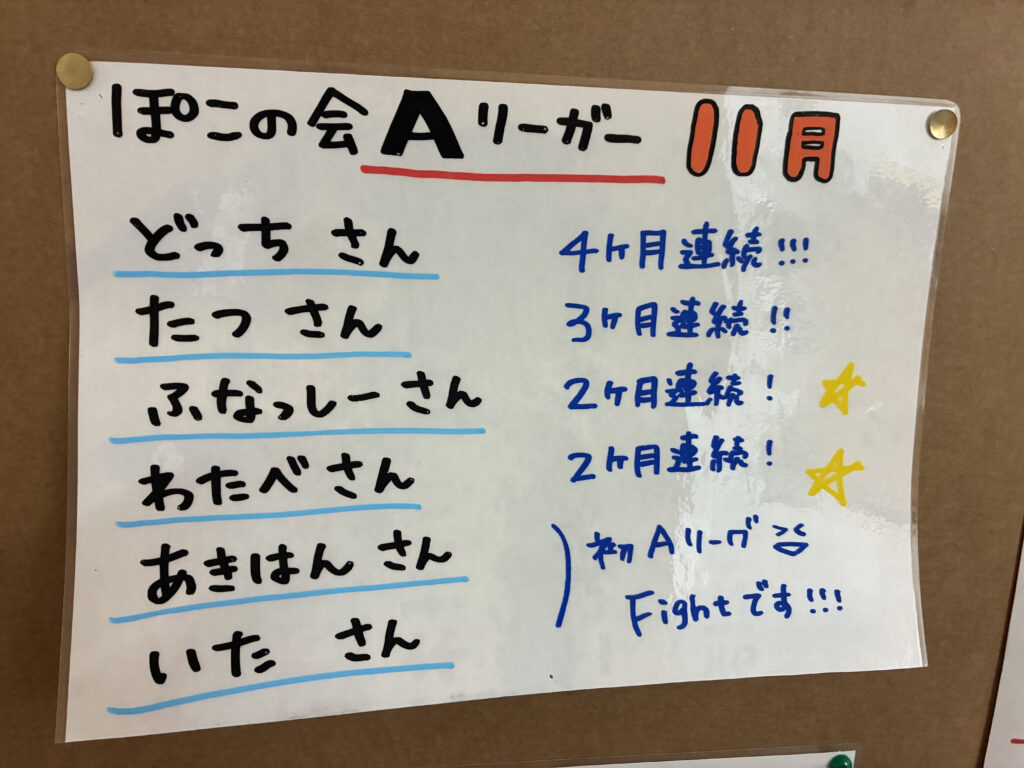 ぽこの会Aリーガー 11月
どっち さん 4ヶ月連続!!!
たつ さん 3ヶ月連続!!
ふなっしーさん 2ヶ月連続!
わたべさん 2ヶ月連続!
あきはん さん 初Aリーグ
いた さん Fightです!!!